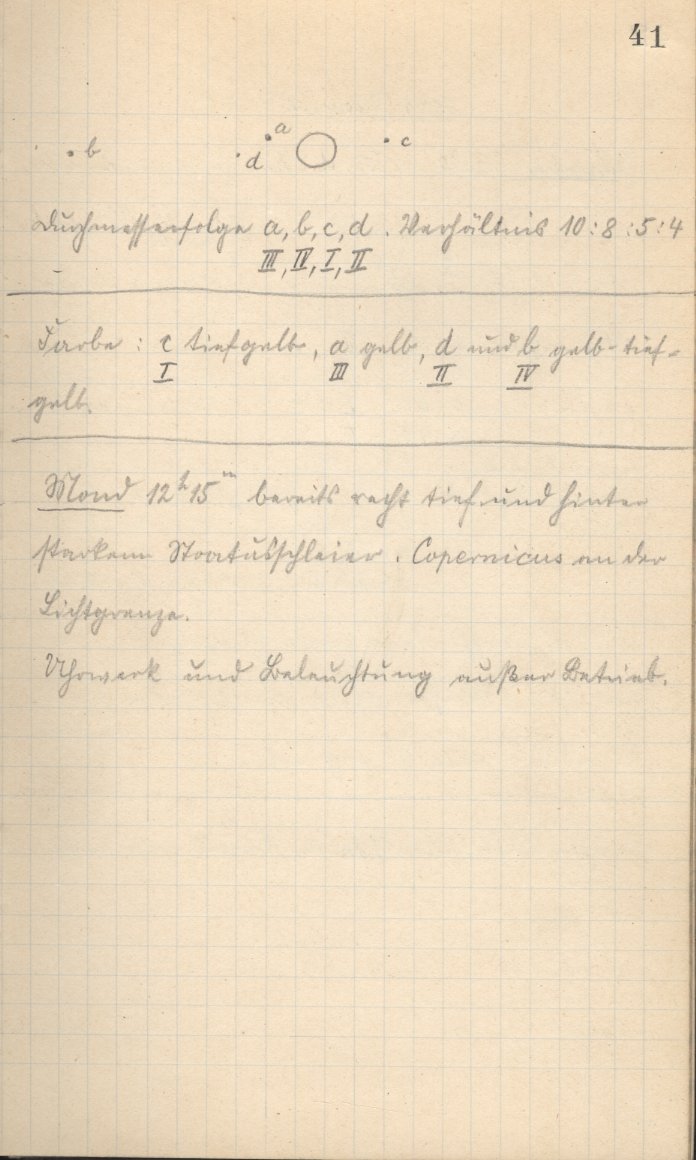 41
a
b d c
Durchmesserfolge a, b, c, d. Verhältnis 10:8:5:4
III, IV, I, II
Farbe: c tiefgelb, a gelb, d und b gelb-tief-
I III II IV
gelb.
Mond 12h 15m bereits recht tief und hinter
starkem Stratusschleier. Copernicus an der
Lichtgrenze.
Uhrwerk und Beleuchtung außer Betrieb.